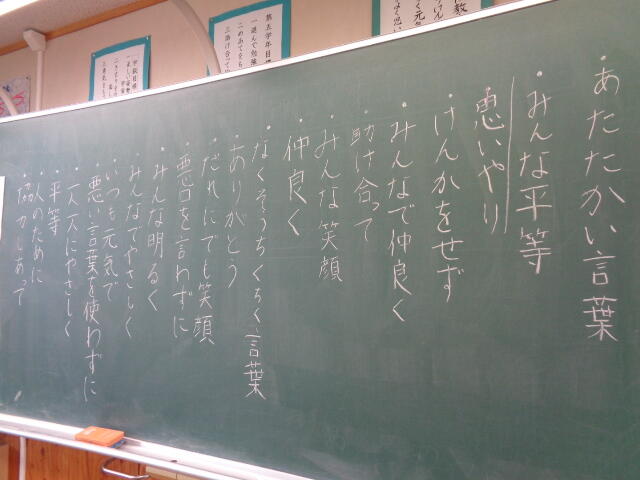 ・あたたかい言葉
・みんな平等
・思いやり
・けんかをせず
・みんなで仲良く
・助け合って
・みんな笑顔
・仲良く
・なくそうちくちく言葉
・ありがとう
・だれにでも笑顔
・悪口を言わずに
・みんな明るく
・みんなでやさしく
・いつも元気で
・悪い言葉を使わずに
・一人一人にやさしく
・平等
・人のために
・協力しあって
第五学年目標